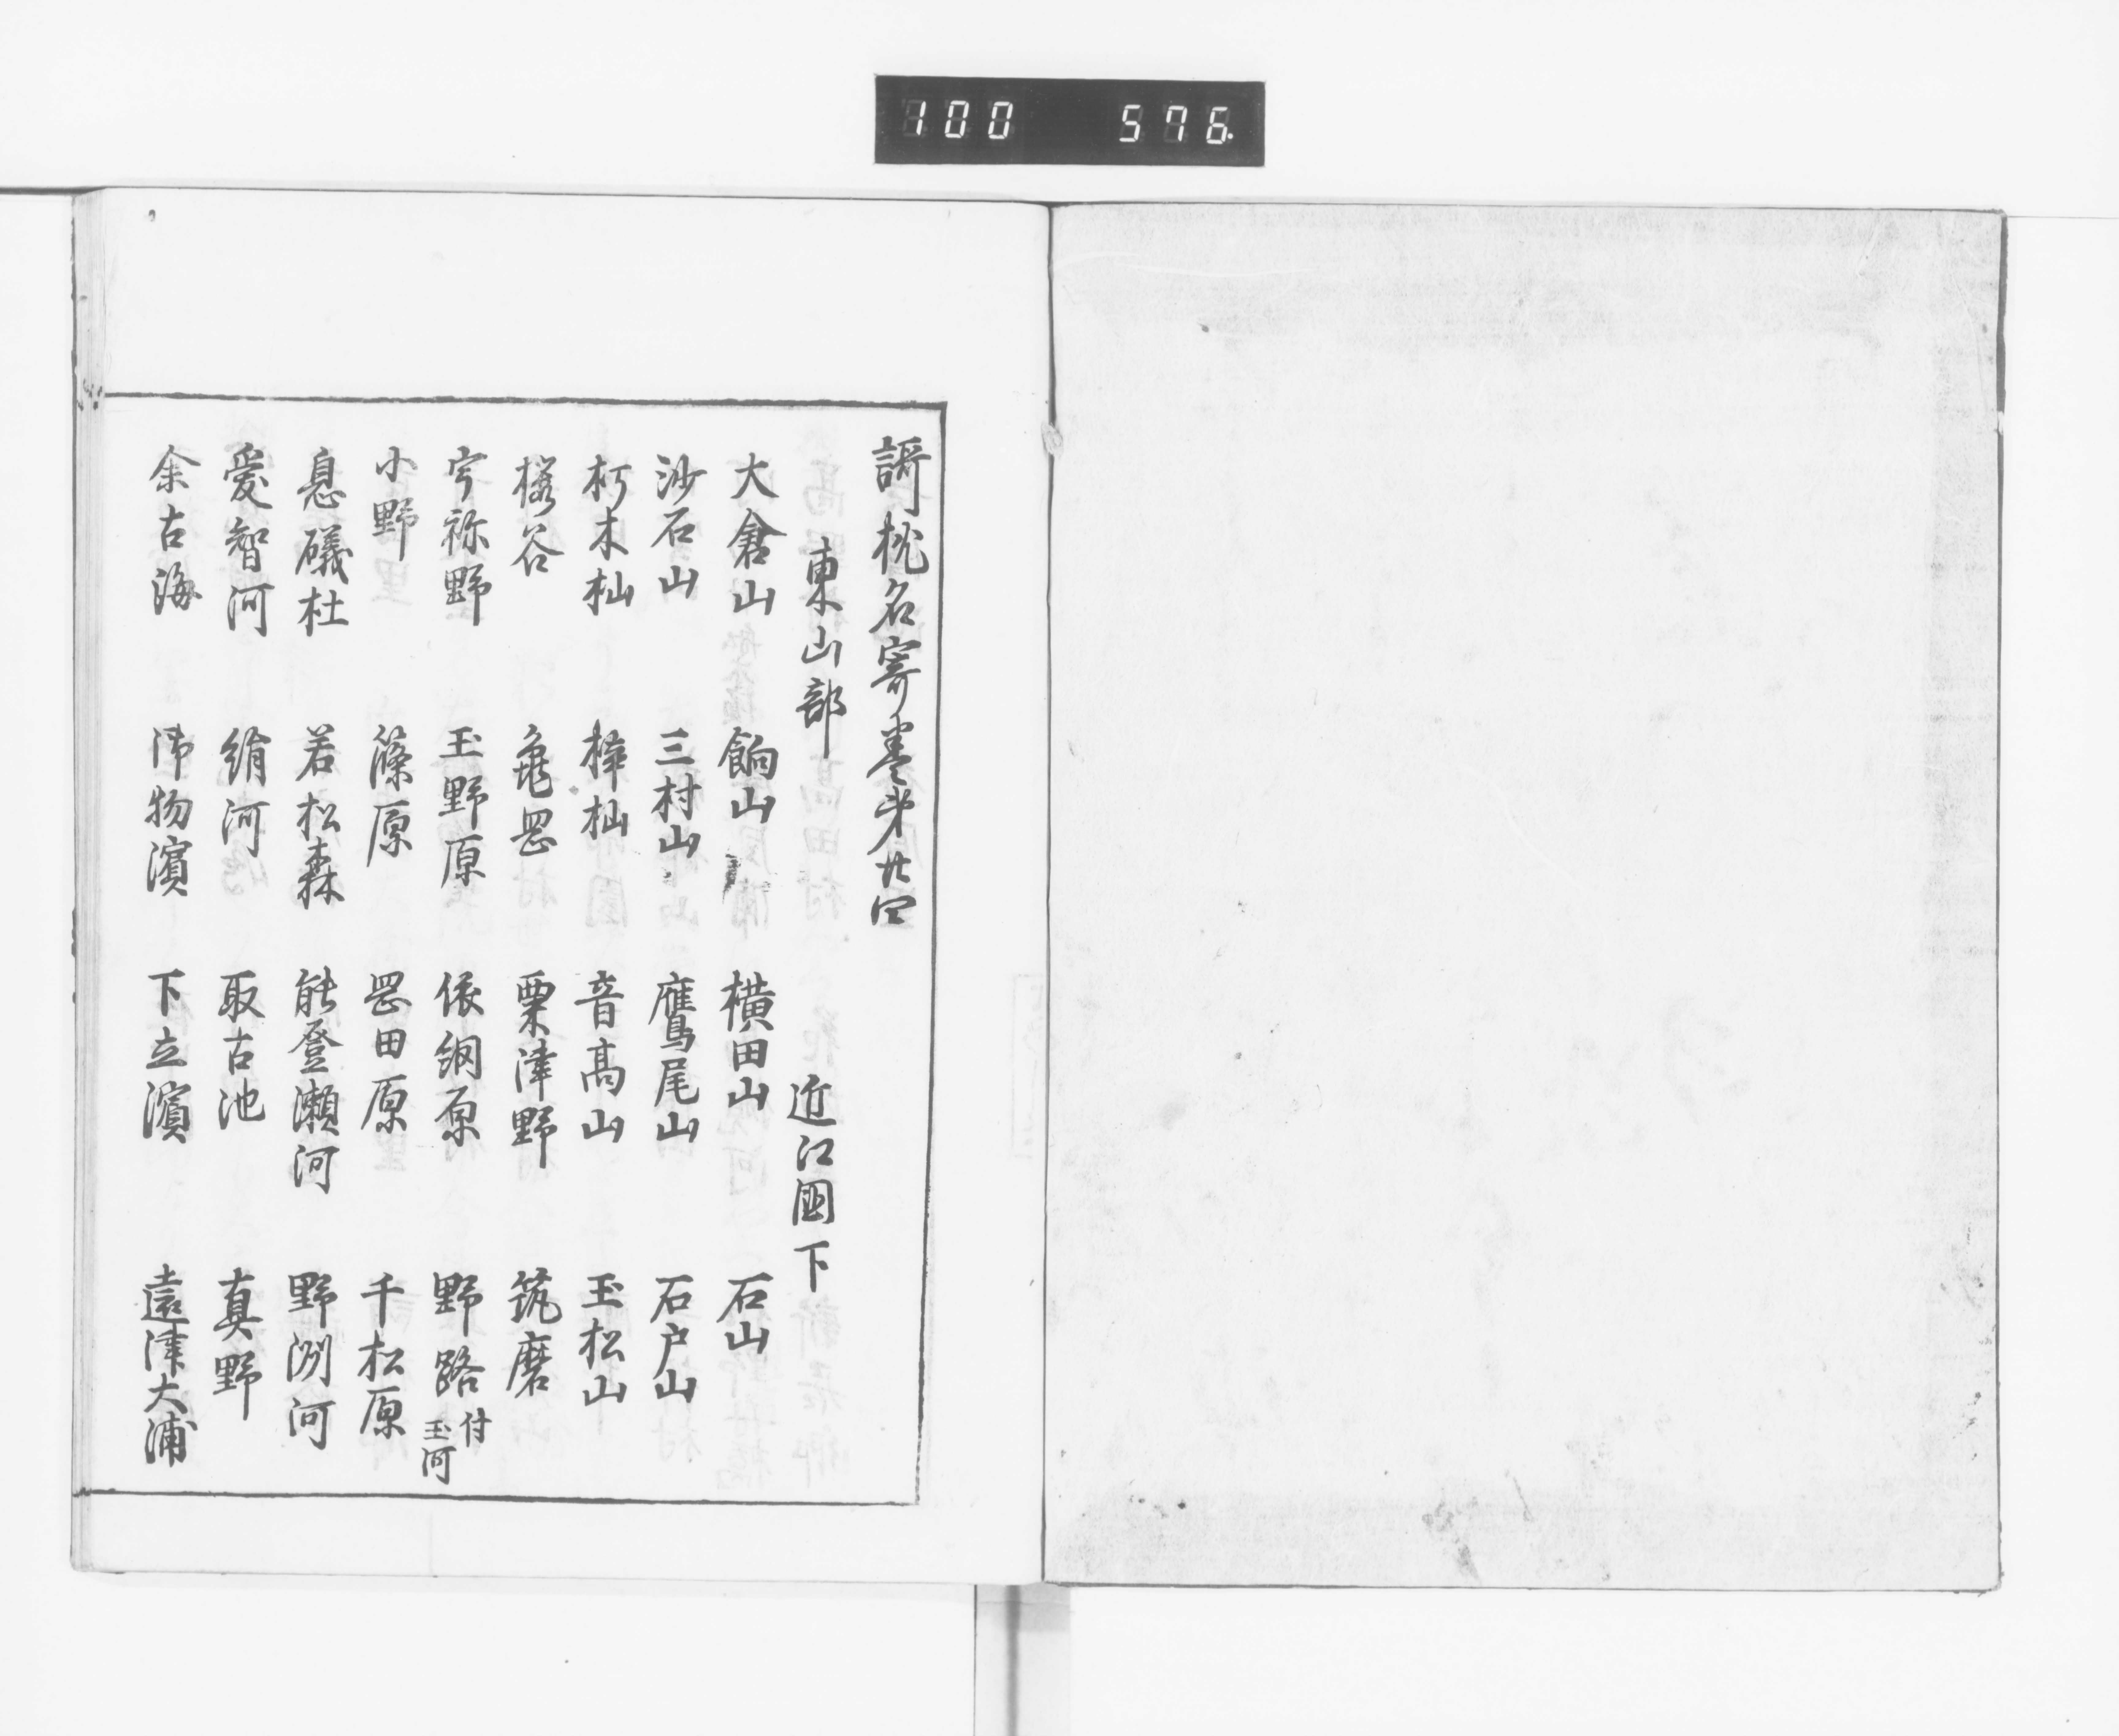 100 576.
謌枕名寄巻第廿四
東山部 近江國下
大倉山 餉山 横田山 石山
沙石山 三村山 鷹尾山 石戸山
朽木杣 梓杣 音髙山 玉松山
櫻谷 龜岡 粟津野 筑磨
宇祢野 玉野原 依網原 野路 付玉河
小野 篠原 岡田原 千松原
息礒杜 若松森 能登瀬河 野洲河
愛智河 絹河 取古池 真野
余古海 御物濱 下立濱 遠津大浦